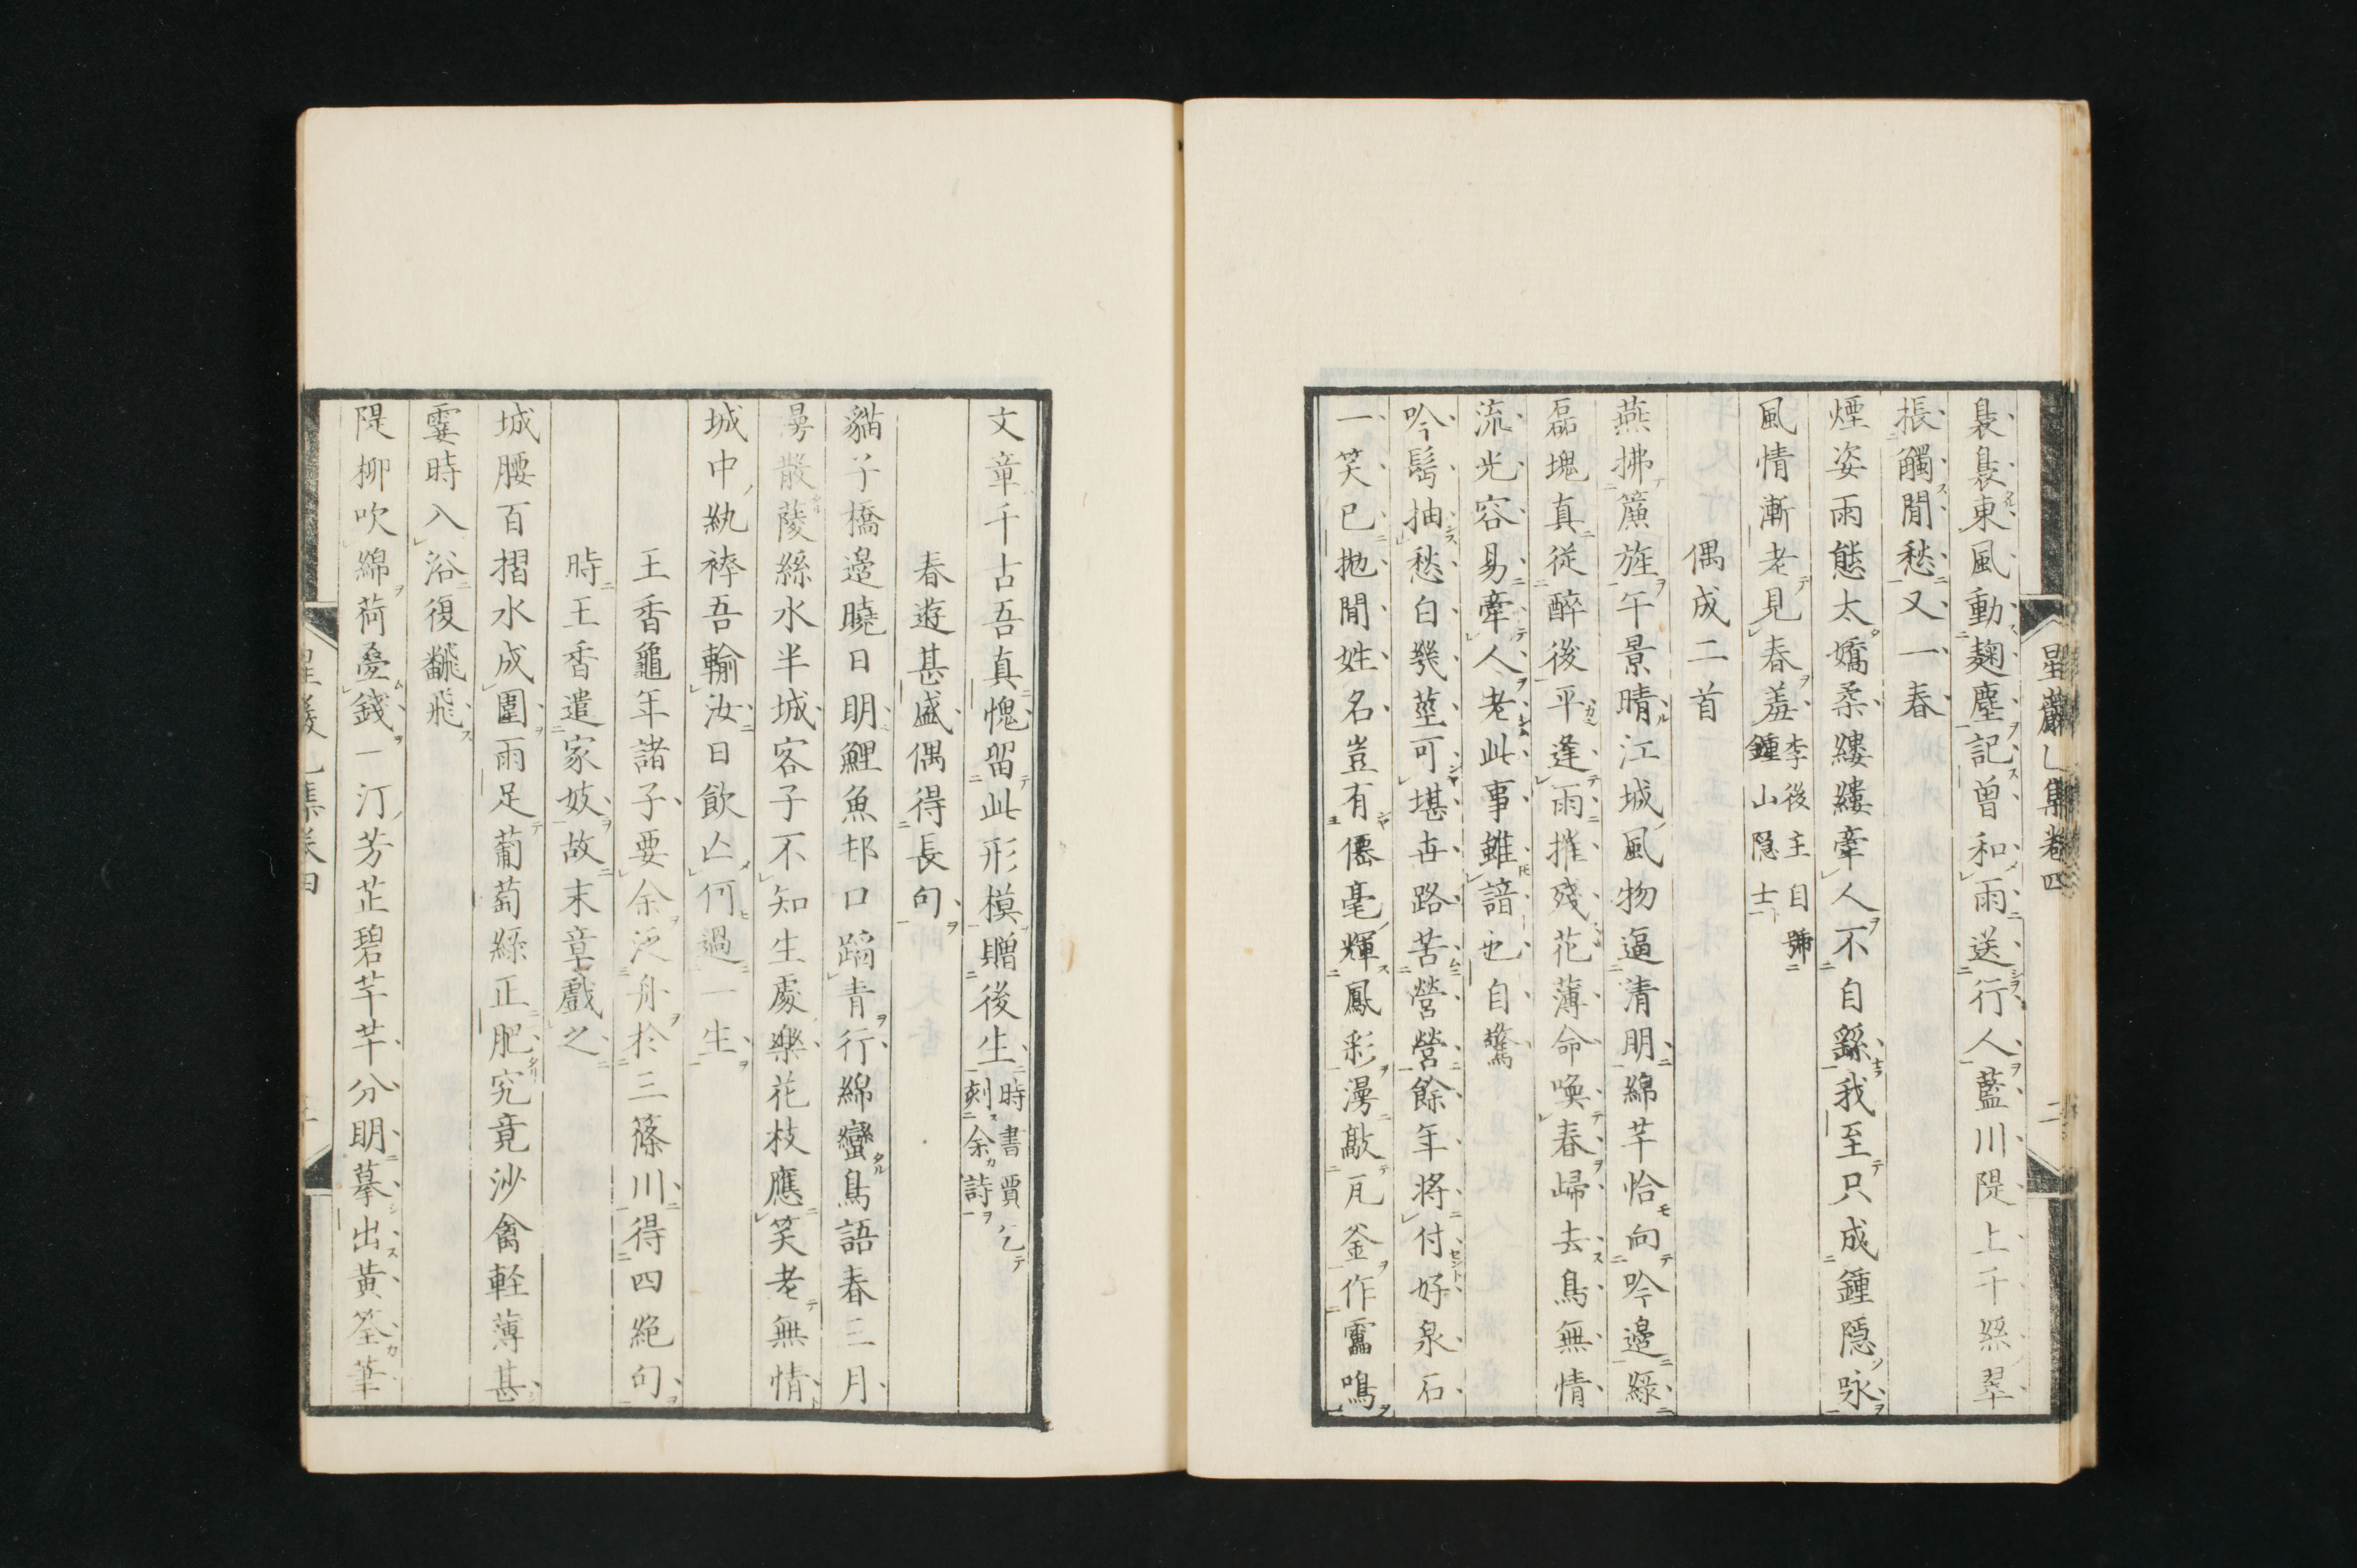 星巖乙集卷四
二
裊裊東風動麹塵記曾和雨送行人藍川隄上千絲翠
振觸閒愁又一春
煙姿雨態太嬌柔縷縷牽人不自繇我至只成鍾隱咏
風情漸老見春羞李後主自號鍾山隱士
偶成二首
燕拂簾旌午景晴江城風物逼清明綿芊恰向吟邊綠
磊塊真從醉後平逢雨摧殘花薄命喚春歸去鳥無情
流光容易牽人老此事雖諳也自驚
吟髩抽愁白幾莖可堪世路苦營營餘年將付好泉石
一笑已拋閒姓名豈有僊毫輝鳳彩漫敲瓦釜作雷鳴
文章千古吾真愧留此形模贈後生時書賈乞刻余詩
春遊甚盛偶得長句
貓子橋邊曉日明鯉魚邨口蹈青行綿蠻鳥語春三月
曑散蔆絲水半城客子不知生處樂花枝應笑老無情
城中紈袴吾輸汝日飲亾何過一生
王香龜年諸子要余泛舟於三篠川得四絶句
時王香遣家妓故末章戲之
城腰百摺水成圍雨足葡萄綠正肥究竟沙禽輕薄甚
霎時入浴復飜飛
隄柳吹綿荷疊錢一汀芳芷碧芊芊分明摹出黃筌筆